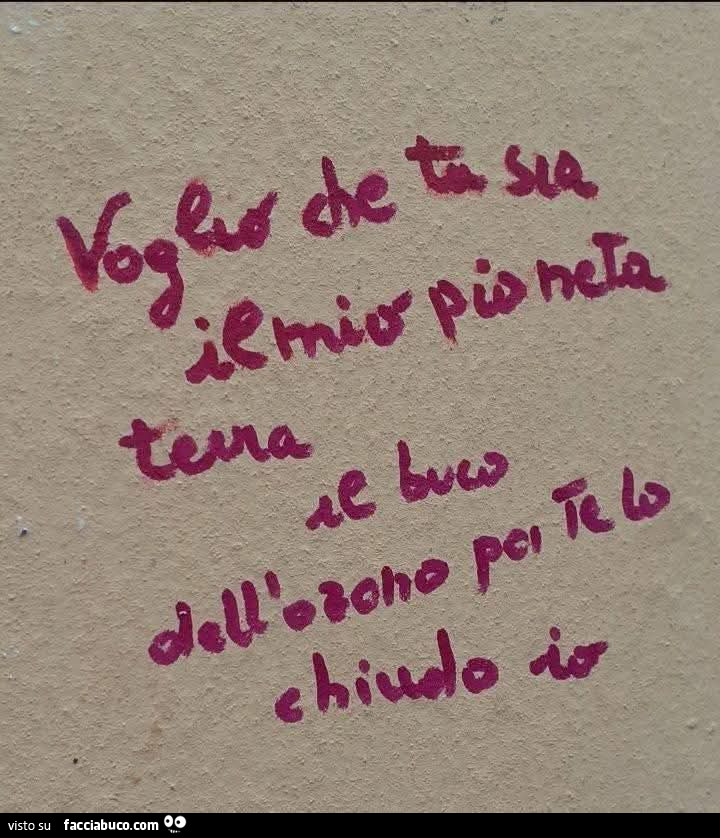 Voglio che tu sia
il mio pianeta
terra
il buco
dell'ozono poi Te lo
chiudo io
visto su facciabuco.com